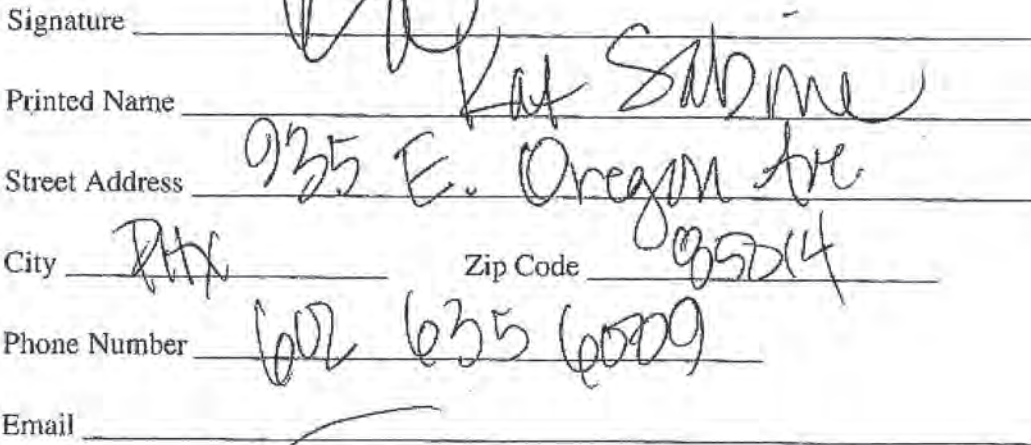 Signature
Printed Name Kat Sabine
Street Address 935 E. Oregon Ave
City PHX Zip Code 85014
Phone Number 602 635 6009
Email